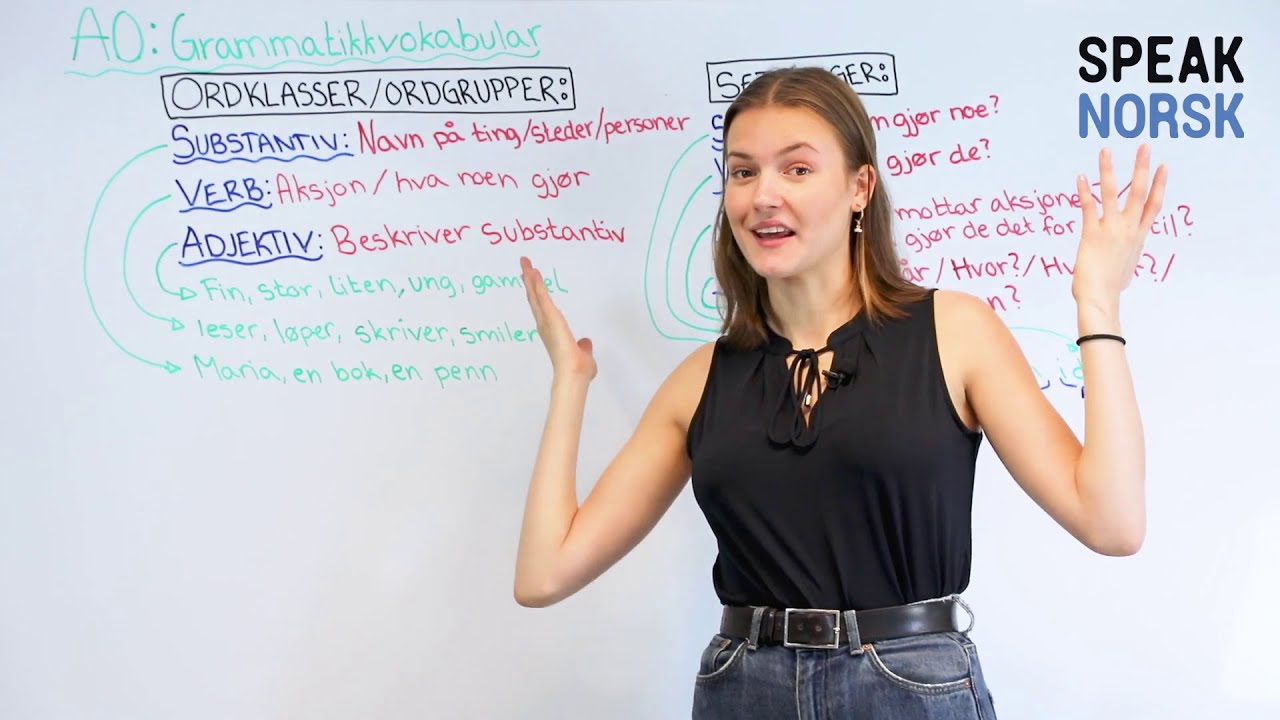 AO: Grammatikkvokabular
ORDKLASSER/ORDGRUPPER:
SUBSTANTIV: Navn på ting/steder/personer
VERB: Aksjon/hva noen gjør
ADJEKTIV: Beskriver substantiv
Fin, stor, liten, ung,
leser, løper, skriver, smiler
Maria, en bok, en penn
gjør noe?
gjør de?
mottar
gjør de det for
Hvor?/
SPEAK
NORSK